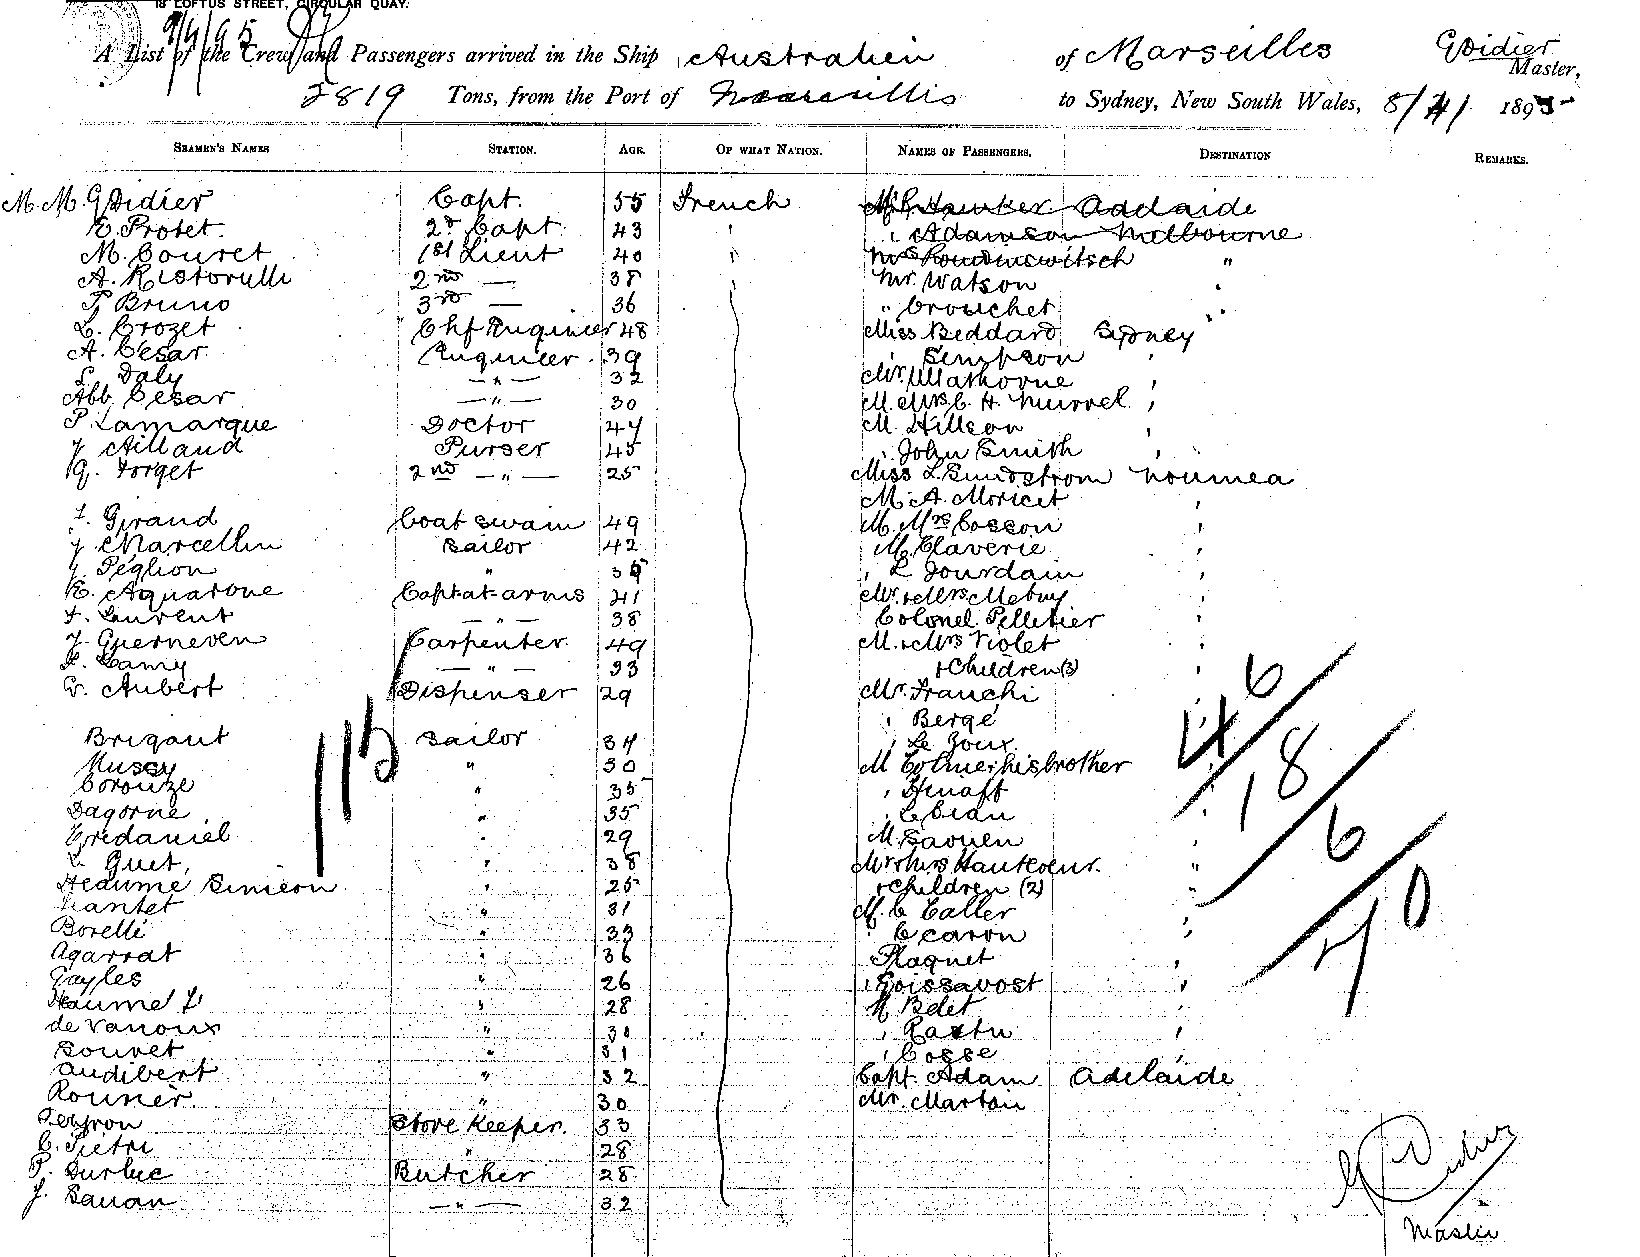 18 LOFTUS STREET, CIRCULAR QUAY.
9/4/95
A List of the Crew and Passengers arrived in the Ship Australien of Marseilles G Didier Master,
2819 Tons, from the Port of Marseilles to Sydney, New South Wales, 8/4/ 1895
SEAMEN'S NAMES STATION. AGE. OF WHAT NATION. NAMES OF PASSENGERS. DESTINATION REMARKS.
M. M. G Didier Capt. 55 French Hawker Adelaide
E. Protet. 2d Capt. 43 " Adamson Melbourne
M. Couret 1st Lieut 40 " "
A. Ristorulli 2nd — 38 Mr. Watson "
P. Bruno 3rd — 36 " Crouchet "
L. Crozet Chf Engineer 48 Miss Beddard Sydney
A. César Engineer 39 " Simpson "
L. Daly — " — 32 Mr "
Abb. César — " — 30 M. Mrs C. H. "
P. Lamarque Doctor 44 M. Hillson "
J Ailland Purser 45 " John Smith "
G. Forget 2nd — " — 25 Miss L. Sundstrom Noumea
M. A. Moricet "
F. Girand Boatswain 49 M. Mrs Cosson "
J Marcellin Sailor 42 M. Claverie "
J. Péglion " " L Jourdain "
E. Aquarone Capt at arms 41 Mr. + Mrs "
F. Laurent — " — 38 Colonel Pelletier "
J. Guerneven Carpenter 49 M. + Mrs Violet "
F. Lamy — " — 33 + Children (3) "
V. Aubert Dispenser 29 Mr. Franchi
" Bergé
Brigant Sailor 34 " Le Zoux
Mussy " 30 M his brother
Corouze " 35 " Hénaff
Dagorne " 35 " Le
Credaniel " 29 M. Saouen
L. Guet, " 38 Mr + Mrs Hautcoeur.
Heaume Simeon " 25 + Children (2) "
" 31 M. C. Caller "
Borelli " 33 " Cearon "
Agarrat " 36 " Plaquet "
Gayles " 26 " Goissavost "
Heaume F " 28 M Belet "
de Vanoux " 30 " "
Bouvet " 31 " Cosse "
Audibert " 32 Capt. Adam Adelaide
Rouner " 30 Mr. Martin
Peyron Store Keeper. 33
C. Pietri " 28
P. Durluc Butcher 28
J. Sauan — " — 32
112
46
18
6
70
G Didier
Master